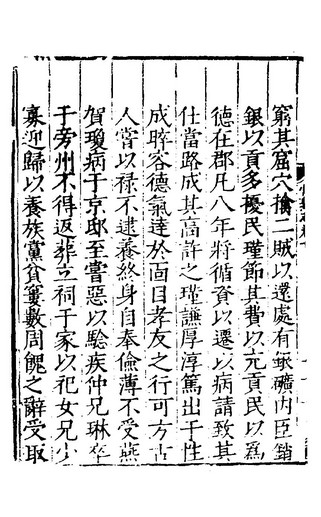 窮其窟穴擒一賊以還處有銀礦内臣銷
銀以貢多擾民瑾節其費以充貢民以爲
德在郡凡八年將循資以遷以病請致其
仕當路成其高許之瑾謙厚淳篤出于性
成睟容德氣達於面目孝友之行可方古
人嘗以祿不逮養終身自奉儉薄不受燕
賀瓊病于京邸至嘗惡以驗疾仲兄琳卒
于旁州不得返葬立祠于家以祀女兄少
寡迎歸以養族黨貧窶數周餽之辭受取